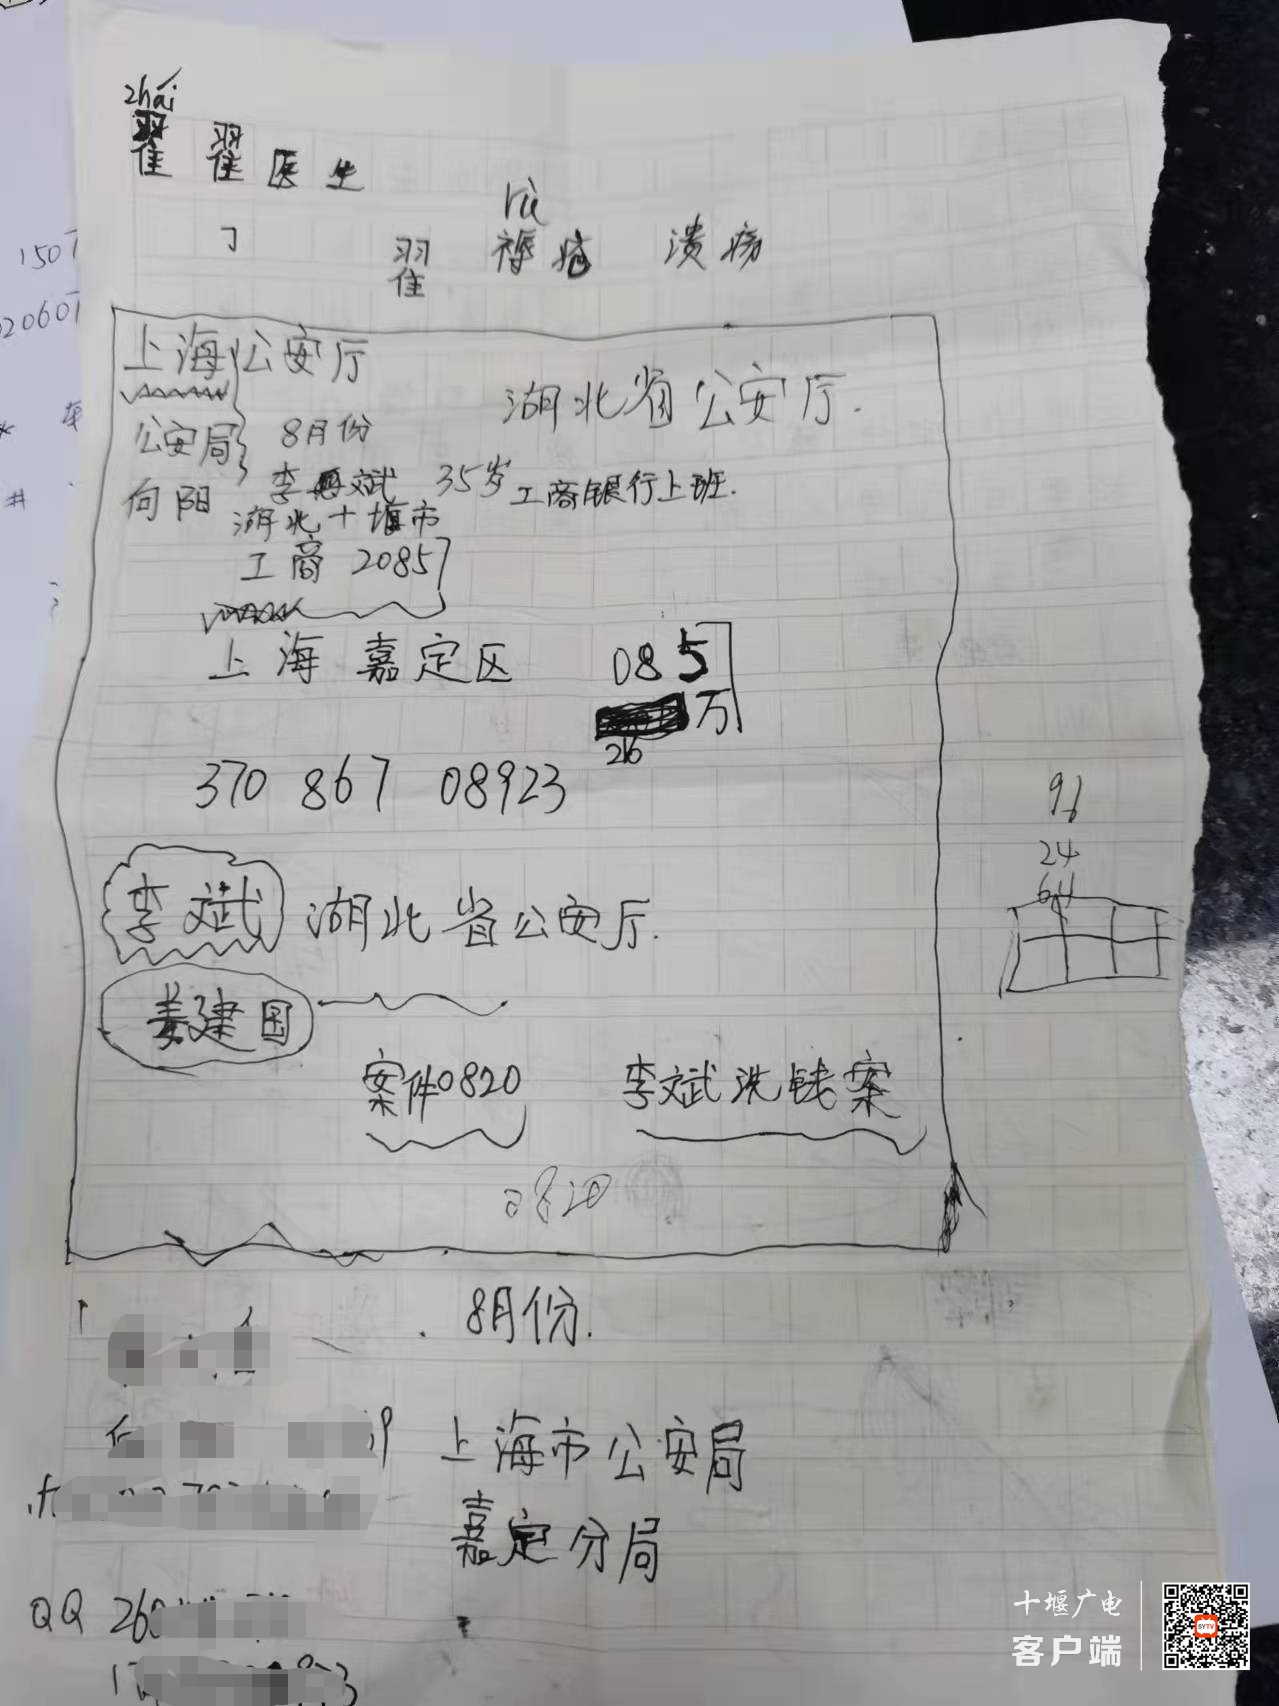 zhái
翟 翟医生
rù
翟 褥疮 溃疡
1507
20607
上海公安厅
湖北省公安厅.
公安局 8月份
向阳 李斌 35岁 工商银行上班.
湖北十堰市
工商 2085
上海 嘉定区 085
万
26
370 867 08923
96
24
64
李斌 湖北省公安厅.
姜建国
案件0820 李斌洗钱案
0820
8月份.
上海市公安局
嘉定分局
QQ 260
十堰广电
客户端
SYTV